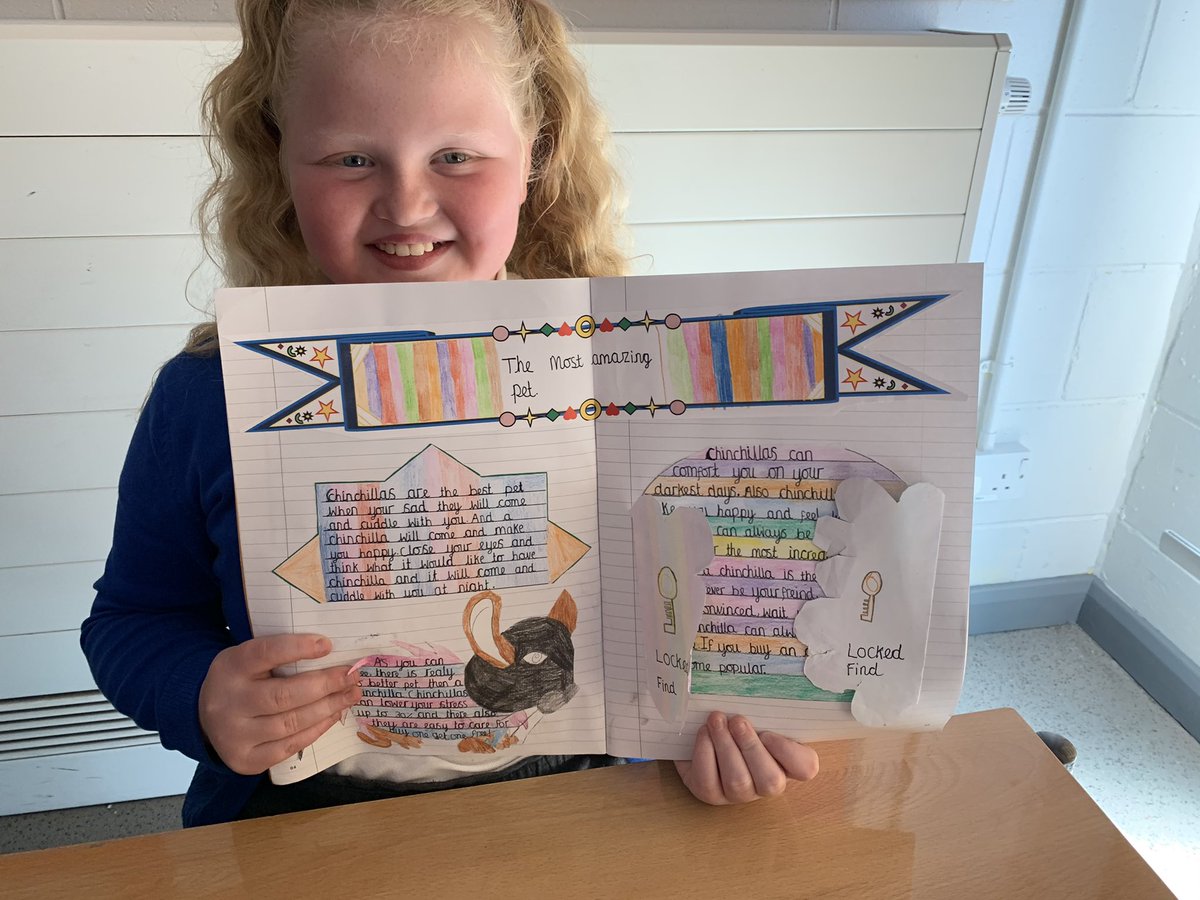 The Most amazing
pet.
Chinchillas are the best pet
when your sad they will come
and cuddle with you. And a
chinchilla will come and make
you happy. Close your eyes and
think what it would like to have
chinchilla and it will come and
cuddle with you at night.
As you can
there is realy
better pet then a
Chinchillas
can lower your stress
up to 30% and there also
they are easy to care for
Buy one get one free!
Chinchillas can
comfort you on your
darkest days. Also chinchill
you happy and feel
can always be
the most incre
a chinchilla is the
be your freind
convinced, wait
chinchilla can alw
If you buy an
me popular.
Locked
Find
Locked
Find